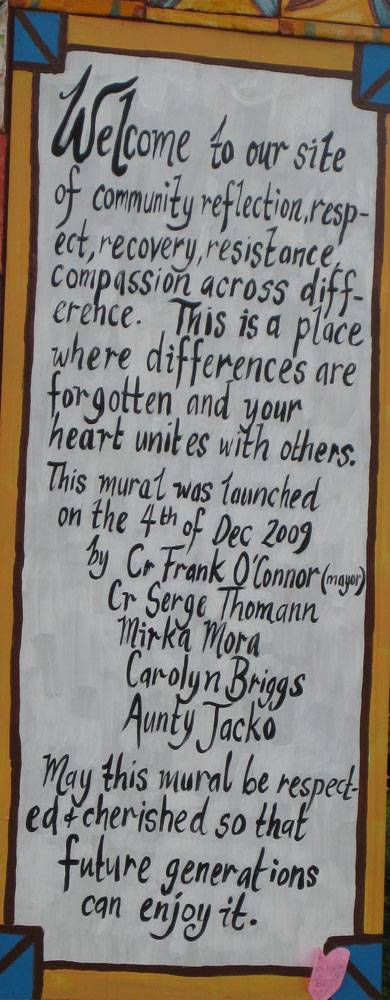 Welcome to our site
of community reflection, resp-
ect, recovery, resistance,
compassion across diff-
erence. This is a place
where differences are
forgotten and your
heart unites with others.
This mural was launched
on the 4th of Dec 2009
by Cr Frank O'Connor (mayor)
Cr Serge Thomann
Mirka Mora
Carolyn Briggs
Aunty Jacko
May this mural be respect-
ed & cherished so that
future generations
can enjoy it.